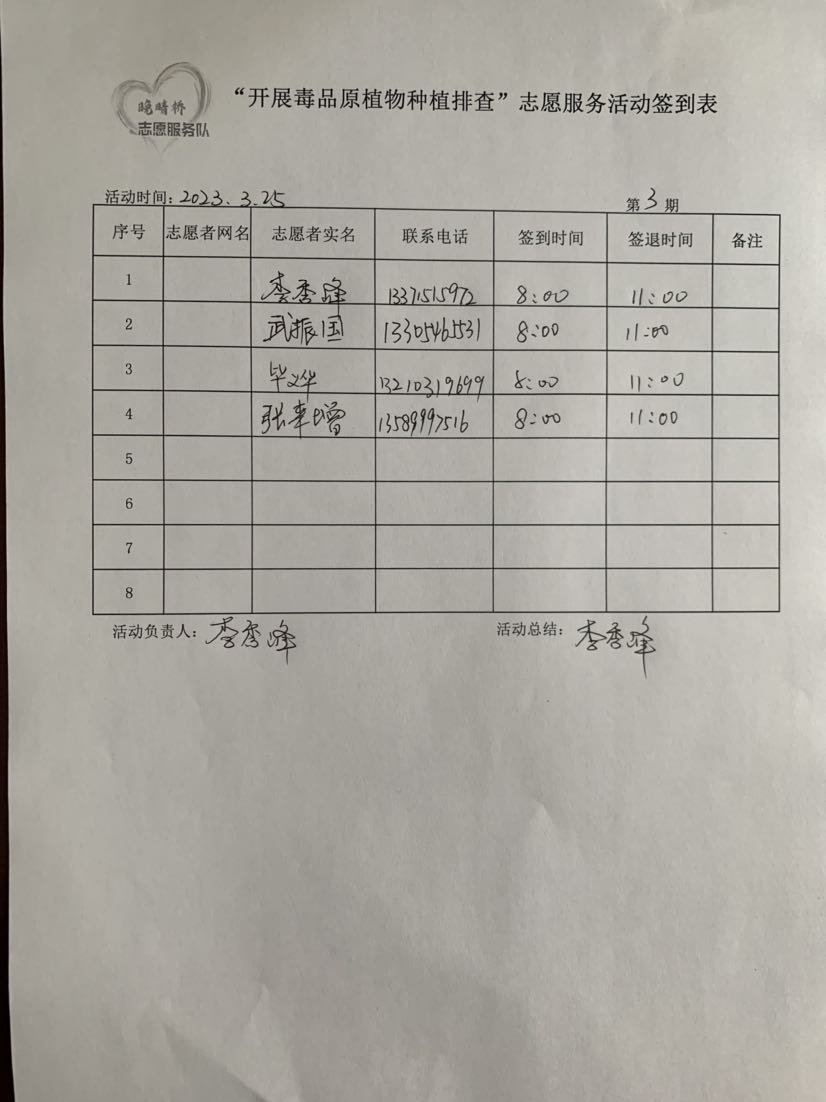 晚晴桥
志愿服务队
“开展毒品原植物种植排查”志愿服务活动签到表
活动时间：2023.3.25 第3期
序号 志愿者网名 志愿者实名 联系电话 签到时间 签退时间 备注
1 李秀峰 13371515972 8:00 11:00
2 武振国 13305465531 8:00 11:00
3 毕义华 13210319699 8:00 11:00
4 张来增 13589997516 8:00 11:00
5
6
7
8
活动负责人：李秀峰 活动总结：李秀峰